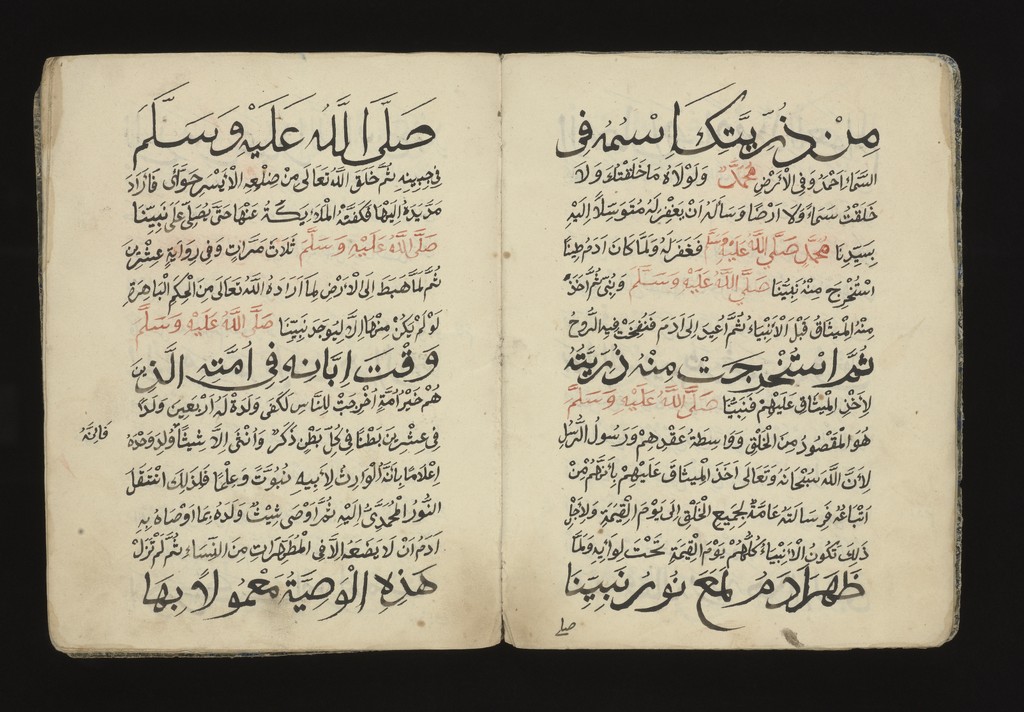 مِنْ ذُرِّيَّتِكَ اِسْمُهُ فِى
السَّمَاءِ اَحْمَدُ وَفِى الْاَرْضِ مُحَمَّدٌ وَلَوْلَاهُ مَا خَلَقْتُكَ وَلَا
خَلَقْتُ سَمَاءً وَلَا اَرْضًا وَسَأَلَهُ اَنْ يَغْفِرَ لَهُ مُتَوَسِّلًا اِلَيْهِ
بِسَيِّدِنَا مُحَمَّدٍ صَلَّى اللَّهُ عَلَيْهِ وَسَلَّمَ فَغَفَرَ لَهُ وَلَمَّا كَانَ اٰدَمُ طِينًا
اسْتُخْرِجَ مِنْهُ نَبِيُّنَا صَلَّى اللَّهُ عَلَيْهِ وَسَلَّمَ وَنُبِّئَ ثُمَّ اُخِذَ
مِنْهُ الْمِيثَاقُ قَبْلَ الْاَنْبِيَاءِ ثُمَّ اُعِيدَ اِلَى اٰدَمَ فَنُفِخَتْ فِيهِ الرُّوحُ
ثُمَّ اسْتُخْرِجَتْ مِنْهُ ذُرِّيَّتُهُ
لِاَخْذِ الْمِيثَاقِ عَلَيْهِمْ فَنَبِيُّنَا صَلَّى اللَّهُ عَلَيْهِ وَسَلَّمَ
هُوَ الْمَقْصُودُ مِنَ الْخَلْقِ وَوَاسِطَةُ عِقْدِهِمْ وَرَسُولُ الرُّسُلِ
لِاَنَّ اللَّهَ سُبْحَانَهُ وَتَعَالَى اَخَذَ الْمِيثَاقَ عَلَيْهِمْ بِاَنَّهُمْ مِنْ
اَتْبَاعِهِ فَرِسَالَتُهُ عَامَّةٌ لِجَمِيعِ الْخَلْقِ اِلَى يَوْمِ الْقِيٰمَةِ وَلِاَجْلِ
ذٰلِكَ تَكُونُ الْاَنْبِيَاءُ كُلُّهُمْ يَوْمَ الْقِيٰمَةِ تَحْتَ لِوَائِهِ وَلَمَّا
ظَهَرَ اٰدَمُ لَمَعَ نُورُ نَبِيِّنَا
صلى
صَلَّى اللَّهُ عَلَيْهِ وَسَلَّمَ
فِى جَبِينِهِ ثُمَّ خَلَقَ اللَّهُ تَعَالَى مِنْ ضِلْعِهِ الْاَيْسَرِ حَوَّاءَ فَاَرَادَ
مَدَّ يَدِهِ اِلَيْهَا فَكَفَّتْهُ الْمَلَائِكَةُ عَنْهَا حَتَّى يُصَلِّىَ عَلَى نَبِيِّنَا
صَلَّى اللَّهُ عَلَيْهِ وَسَلَّمَ ثَلَاثَ مَرَّاتٍ وَفِى رِوَايَةٍ عِشْرِينَ
ثُمَّ لَمَّا هَبَطَ اِلَى الْاَرْضِ لِمَا اَرَادَهُ اللَّهُ تَعَالَى مِنَ الْحِكَمِ الْبَاهِرَةِ
لَوْ لَمْ يَكُنْ مِنْهَا اِلَّا لِيُوجَدَ نَبِيُّنَا صَلَّى اللَّهُ عَلَيْهِ وَسَلَّمَ
وَقْتَ اِبَّانِهِ فِى اُمَّتِهِ الَّذِينَ
هُمْ خَيْرُ اُمَّةٍ اُخْرِجَتْ لِلنَّاسِ لَكَفَى وَلَدَتْ لَهُ اَرْبَعِينَ وَلَدًا
فِى عِشْرِينَ بَطْنًا فِى كُلِّ بَطْنٍ ذَكَرٌ وَاُنْثَى اِلَّا شِيثًا وُلِدَ وَحْدَهُ
فَاِنَّهُ
اِعْلَامًا بِاَنَّهُ الْوَارِثُ لِاَبِيهِ نُبُوَّةً وَعِلْمًا فَلِذٰلِكَ انْتَقَلَ
النُّورُ الْمُحَمَّدِىُّ اِلَيْهِ ثُمَّ اَوْصَى شِيثٌ وَلَدَهُ بِمَا اَوْصَاهُ بِهِ
اٰدَمُ اَنْ لَا يَضَعَهُ اِلَّا فِى الْمُطَهَّرَاتِ مِنَ النِّسَاءِ ثُمَّ لَمْ تَزَلْ
هٰذِهِ الْوَصِيَّةُ مَعْمُولًا بِهَا